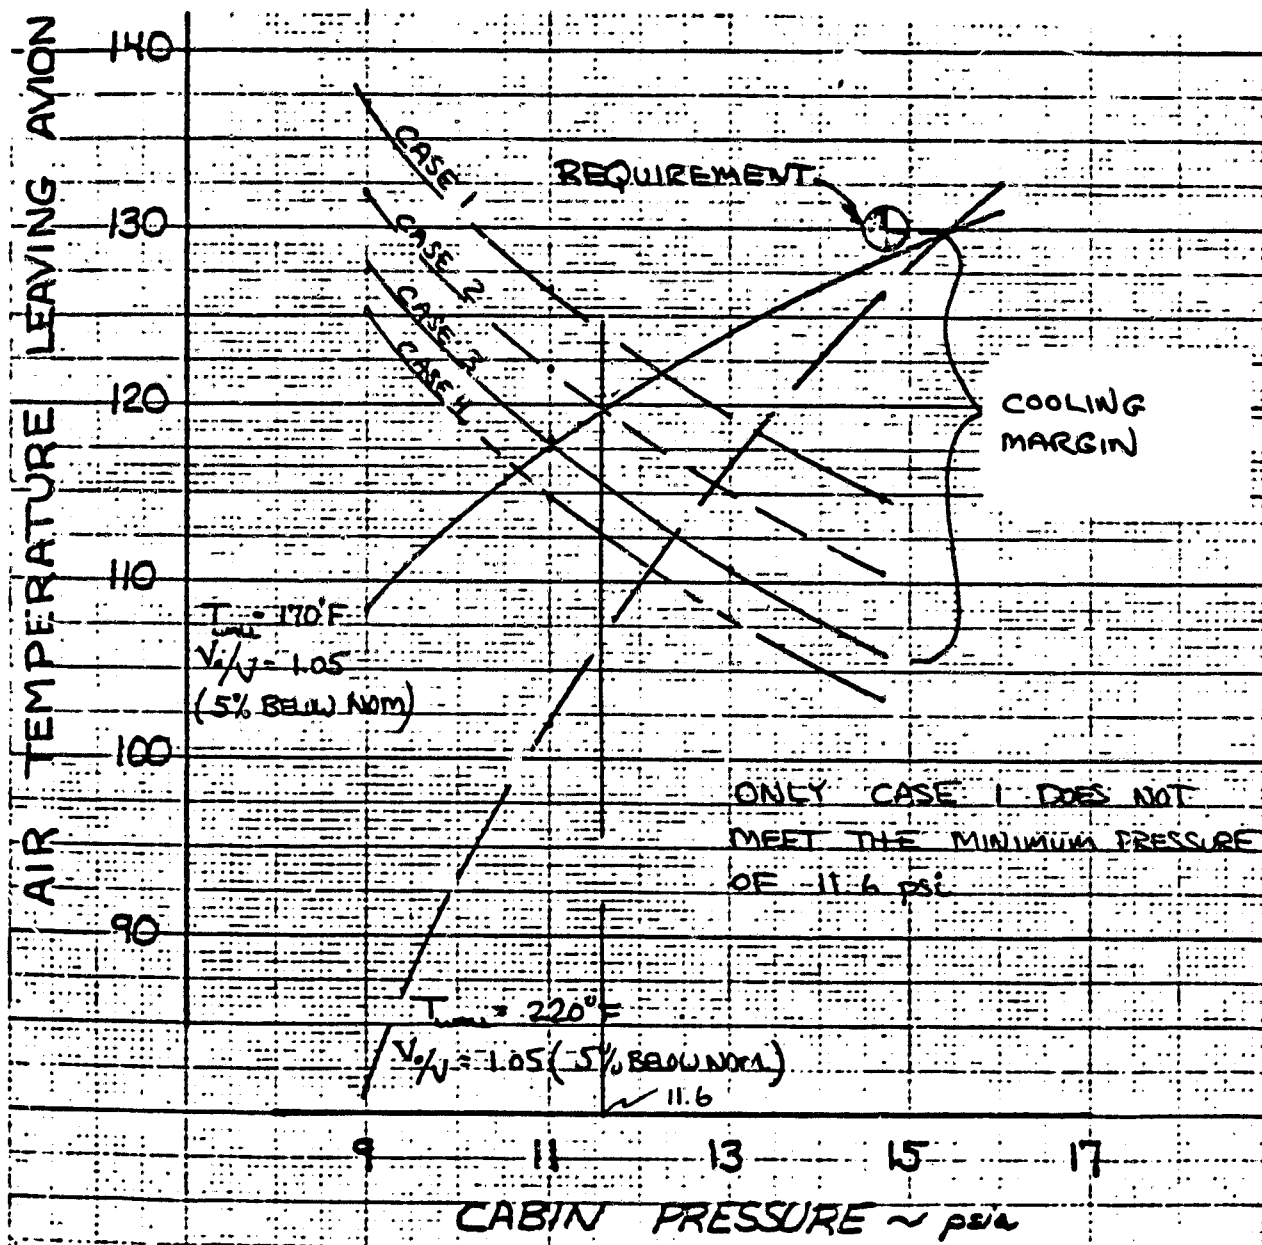 AIR TEMPERATURE LEAVING AVION
140
130
120
110
100
90
CASE 1
CASE 2
CASE 3
CASE 4
REQUIREMENT
COOLING
MARGIN
T wall = 170°F
V₀/V = 1.05
(5% BELOW NOM)
ONLY CASE 1 DOES NOT
MEET THE MINIMUM PRESSURE
OF 11.6 psi
T wall = 220°F
V₀/V = 1.05 (5% BELOW NOM)
11.6
9 11 13 15 17
CABIN PRESSURE ~ psia